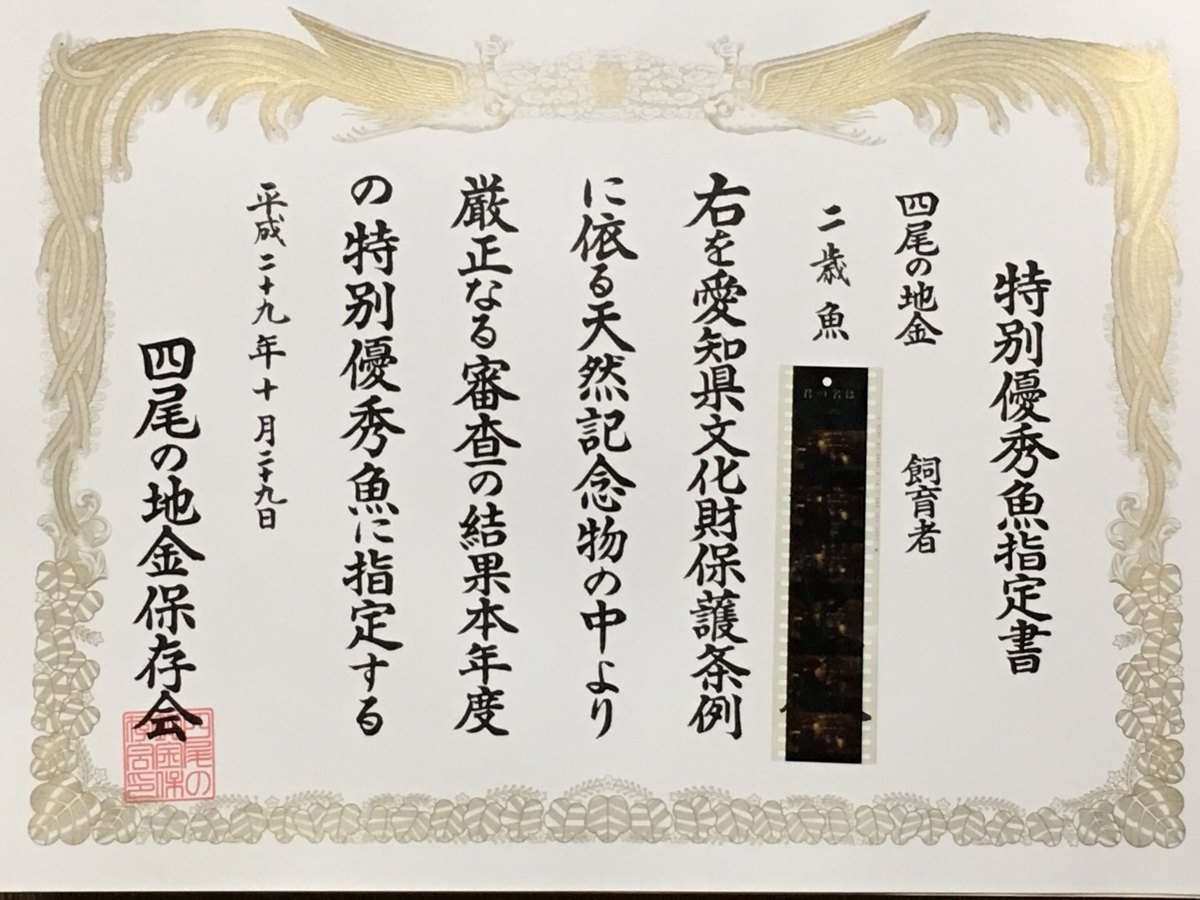 特別優秀魚指定書
四尾の地金
飼育者
二歳魚
君の名は
右を愛知県文化財保護条例
に依る天然記念物の中より
厳正なる審査の結果本年度
の特別優秀魚に指定する
平成二十九年十月二十九日
四尾の地金保存会
四尾の
地金保
存会印